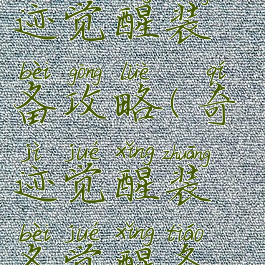 迹觉醒装
bèi gōng lüè qí
备攻略(奇
jì jué xǐng zhuāng
迹觉醒装
bèi jué xǐng tiáo
备觉醒条